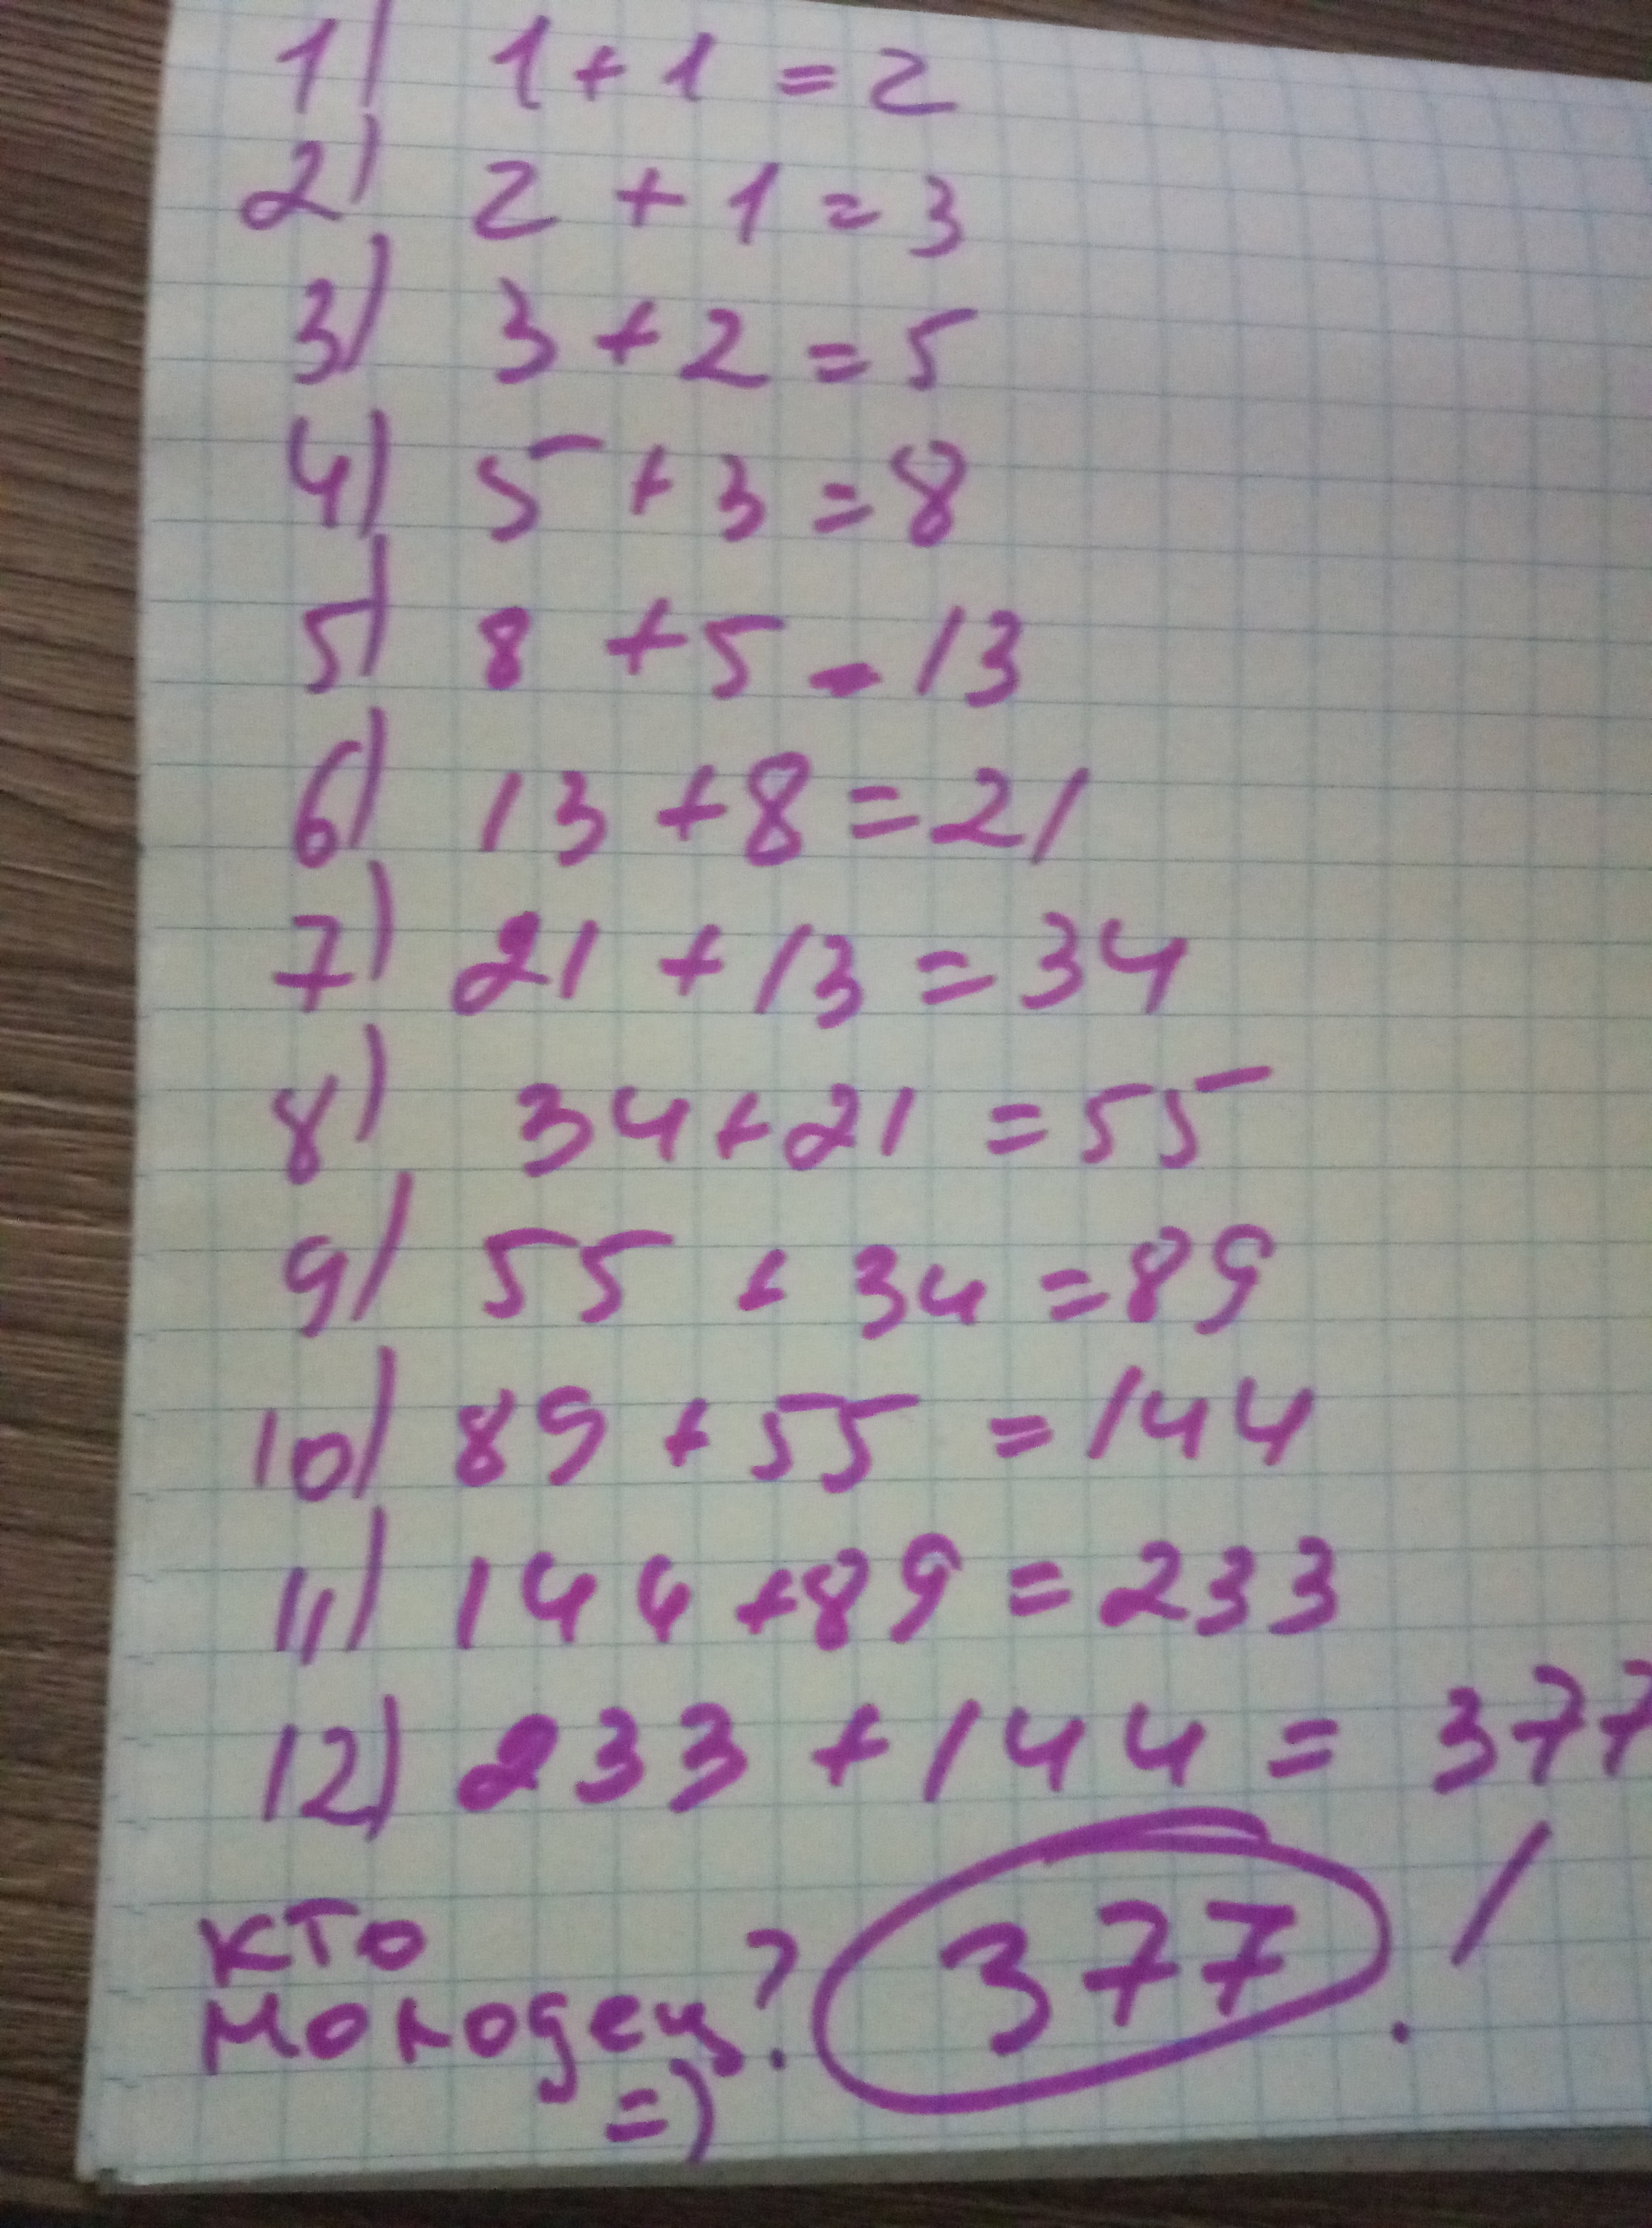 1) 1 + 1 = 2
2) 2 + 1 = 3
3) 3 + 2 = 5
4) 5 + 3 = 8
5) 8 + 5 = 13
6) 13 + 8 = 21
7) 21 + 13 = 34
8) 34 + 21 = 55
9) 55 + 34 = 89
10) 89 + 55 = 144
11) 144 + 89 = 233
12) 233 + 144 = 377
кто
молодец? 377!
=)